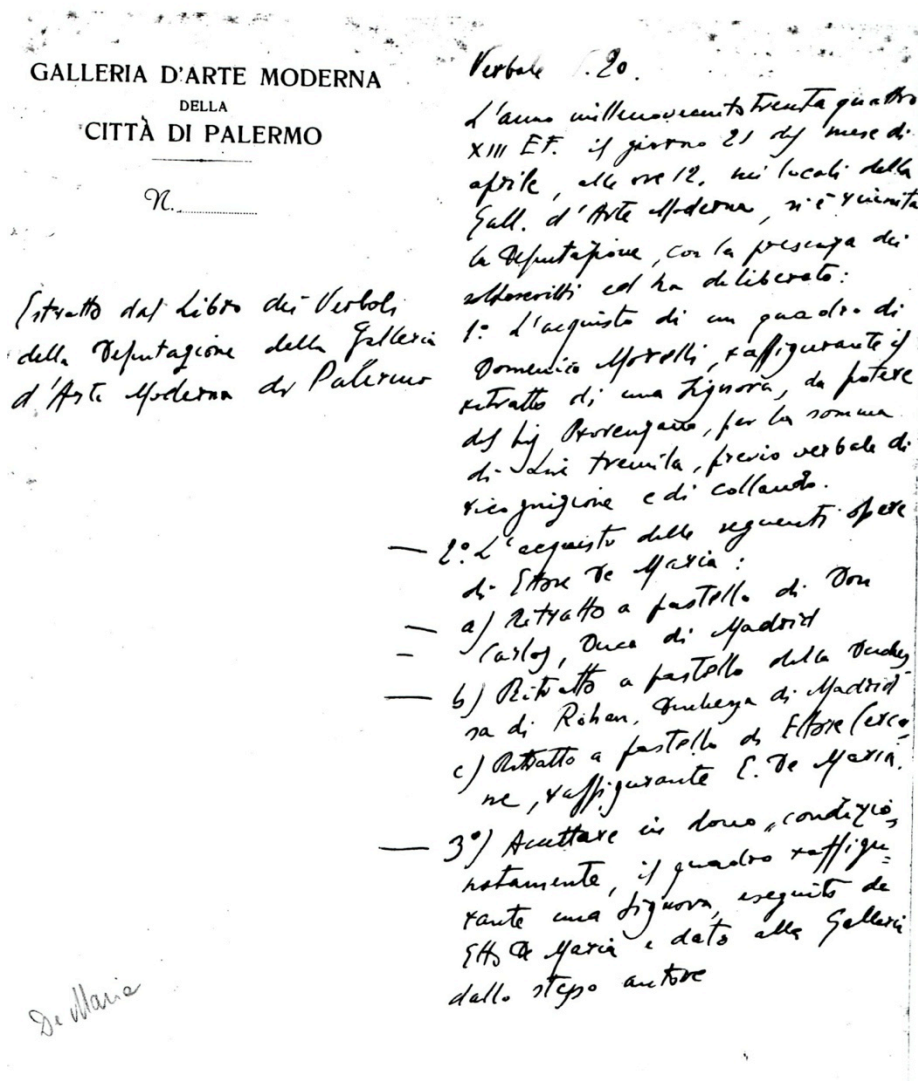 GALLERIA D'ARTE MODERNA
DELLA
CITTÀ DI PALERMO
N.
Estratto dal Libro dei Verbali
della Deputazione della Galleria
d'Arte Moderna di Palermo
De Maria
Verbale 20.
L'anno millenovecentotrentaquattro
XIII E.F. il giorno 21 del mese di
aprile, alle ore 12, nei locali della
Gall. d'Arte Moderna, si è riunita
la Deputazione, con la presenza dei
sottoscritti ed ha deliberato:
1º L'acquisto di un quadro di
Domenico Morelli, raffigurante il
ritratto di una Signora, da potere
del Sig Provenzano, per la somma
di Lire tremila, previo verbale di
ricognizione e di collaudo.
2º L'acquisto delle seguenti opere
di Ettore De Maria:
a) Ritratto a pastello di Don
Carlos, Duca di Madrid
b) Ritratto a pastello della Duches
sa di Rohan, Duchessa di Madrid
c) Ritratto a pastello di Ettore
ne, raffigurante E. De Maria.
3º) Accettare in dono, condizio
natamente, il quadro raffigu=
rante una Signora, eseguito da
De Maria e dato alla Galleria
dallo stesso autore